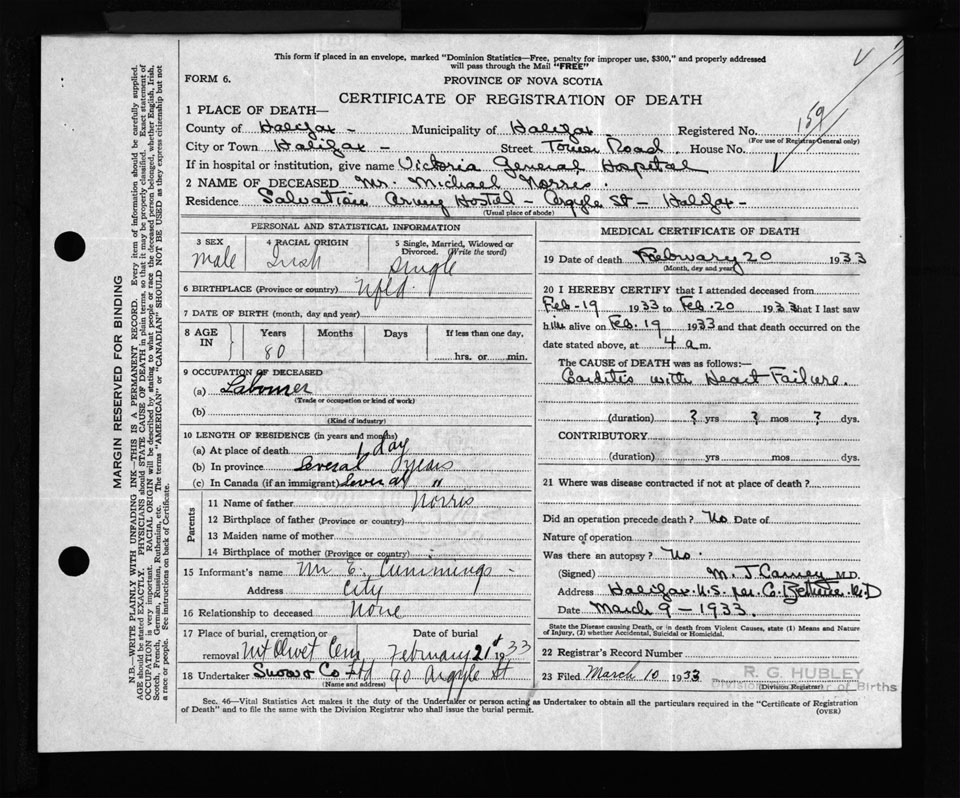 This form if placed in an envelope, marked "Dominion Statistics—Free, penalty for improper use, $300," and properly addressed
will pass through the Mail "FREE"
FORM 6.
PROVINCE OF NOVA SCOTIA
CERTIFICATE OF REGISTRATION OF DEATH
159
1 PLACE OF DEATH—
County of Halifax - Municipality of Halifax Registered No.
(For use of Registrar General only)
City or Town Halifax - Street Tower Road House No.
If in hospital or institution, give name Victoria General Hospital
2 NAME OF DECEASED Mr. Michael Norris.
Residence Salvation Army Hostel - Argyle St - Halifax -
(Usual place of abode)
PERSONAL AND STATISTICAL INFORMATION
3 SEX 4 RACIAL ORIGIN 5 Single, Married, Widowed or
Divorced. (Write the word)
Male Irish Single
6 BIRTHPLACE (Province or country) Nfld.
7 DATE OF BIRTH (month, day and year)
8 AGE IN Years Months Days If less than one day,
80 hrs. or min.
9 OCCUPATION OF DECEASED
(a) Labourer
(Trade or occupation or kind of work)
(b)
(Kind of industry)
10 LENGTH OF RESIDENCE (in years and months)
(a) At place of death 1 day
(b) In province Several years
(c) In Canada (if an immigrant) Several "
Parents
11 Name of father Norris
12 Birthplace of father (Province or country)
13 Maiden name of mother
14 Birthplace of mother (Province or country)
15 Informant's name Mr E. Cummings -
Address City
16 Relationship to deceased None
17 Place of burial, cremation or removal Date of burial
Mt Olivet Cem February 21st 33
18 Undertaker Snow & Co Ltd 90 Argyle St
(Name and address)
MEDICAL CERTIFICATE OF DEATH
19 Date of death February 20 1933
(Month, day and year)
20 I HEREBY CERTIFY that I attended deceased from
Feb-19 1933 to Feb. 20 1933 that I last saw
him alive on Feb. 19 1933 and that death occurred on
date stated above, at 4 a m.
The CAUSE OF DEATH was as follows:—
Carditis with Heart Failure.
(duration) ? yrs ? mos ? dys.
CONTRIBUTORY
(duration) yrs mos dys.
21 Where was disease contracted if not at place of death?
Did an operation precede death? No Date of
Nature of operation
Was there an autopsy? No.
(Signed) M. J Carney M.D.
Address Halifax. N.S. per. C. M.D
Date March 9 - 1933.
State the Disease causing Death, or in death from Violent Causes, state (1) Means and
Nature of Injury, (2) whether Accidental, Suicidal or Homicidal.
22 Registrar's Record Number
23 Filed March 10 1933 R. G. HUBLEY
Division Registrar of Births
(Division Registrar)
Sec. 46—Vital Statistics Act makes it the duty of the Undertaker or person acting as Undertaker to obtain all the particulars required in the "Certificate of Registration
of Death" and to file the same with the Division Registrar who shall issue the burial permit.
(OVER)
MARGIN RESERVED FOR BINDING
N.B.—WRITE PLAINLY WITH UNFADING INK—THIS IS A PERMANENT RECORD. Every item of information should be carefully supplied.
AGE should be stated EXACTLY. PHYSICIANS should STATE CAUSE OF DEATH in plain terms, so that it may be properly classified. Exact statement of
OCCUPATION is very important. RACIAL ORIGIN will be described by stating to what people or race the deceased person belonged, whether English, Irish,
Scotch, French, German, Russian, Ruthenian, etc. The terms "AMERICAN" or "CANADIAN" SHOULD NOT BE USED as they express citizenship but not
a race or people. See instructions on back of Certificate.